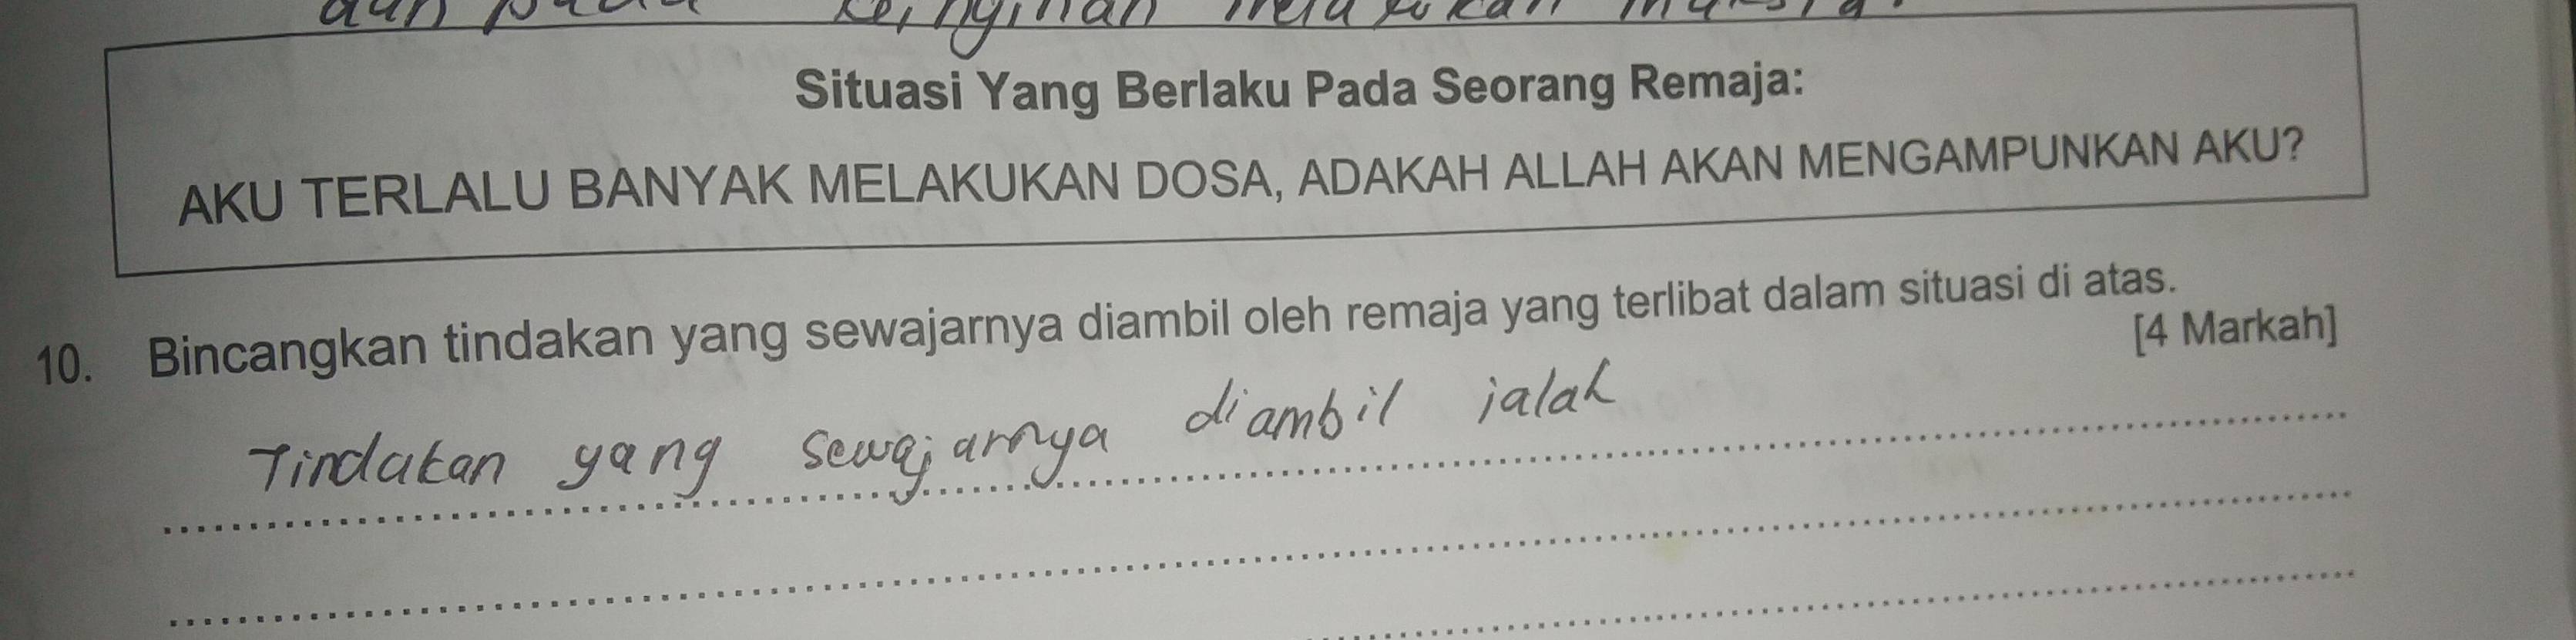 dan pada keinginan melakukan maksia.
Situasi Yang Berlaku Pada Seorang Remaja:
AKU TERLALU BANYAK MELAKUKAN DOSA, ADAKAH ALLAH AKAN MENGAMPUNKAN AKU?
10. Bincangkan tindakan yang sewajarnya diambil oleh remaja yang terlibat dalam situasi di atas.
[4 Markah]
Tindakan yang sewajarnya diambil ialah